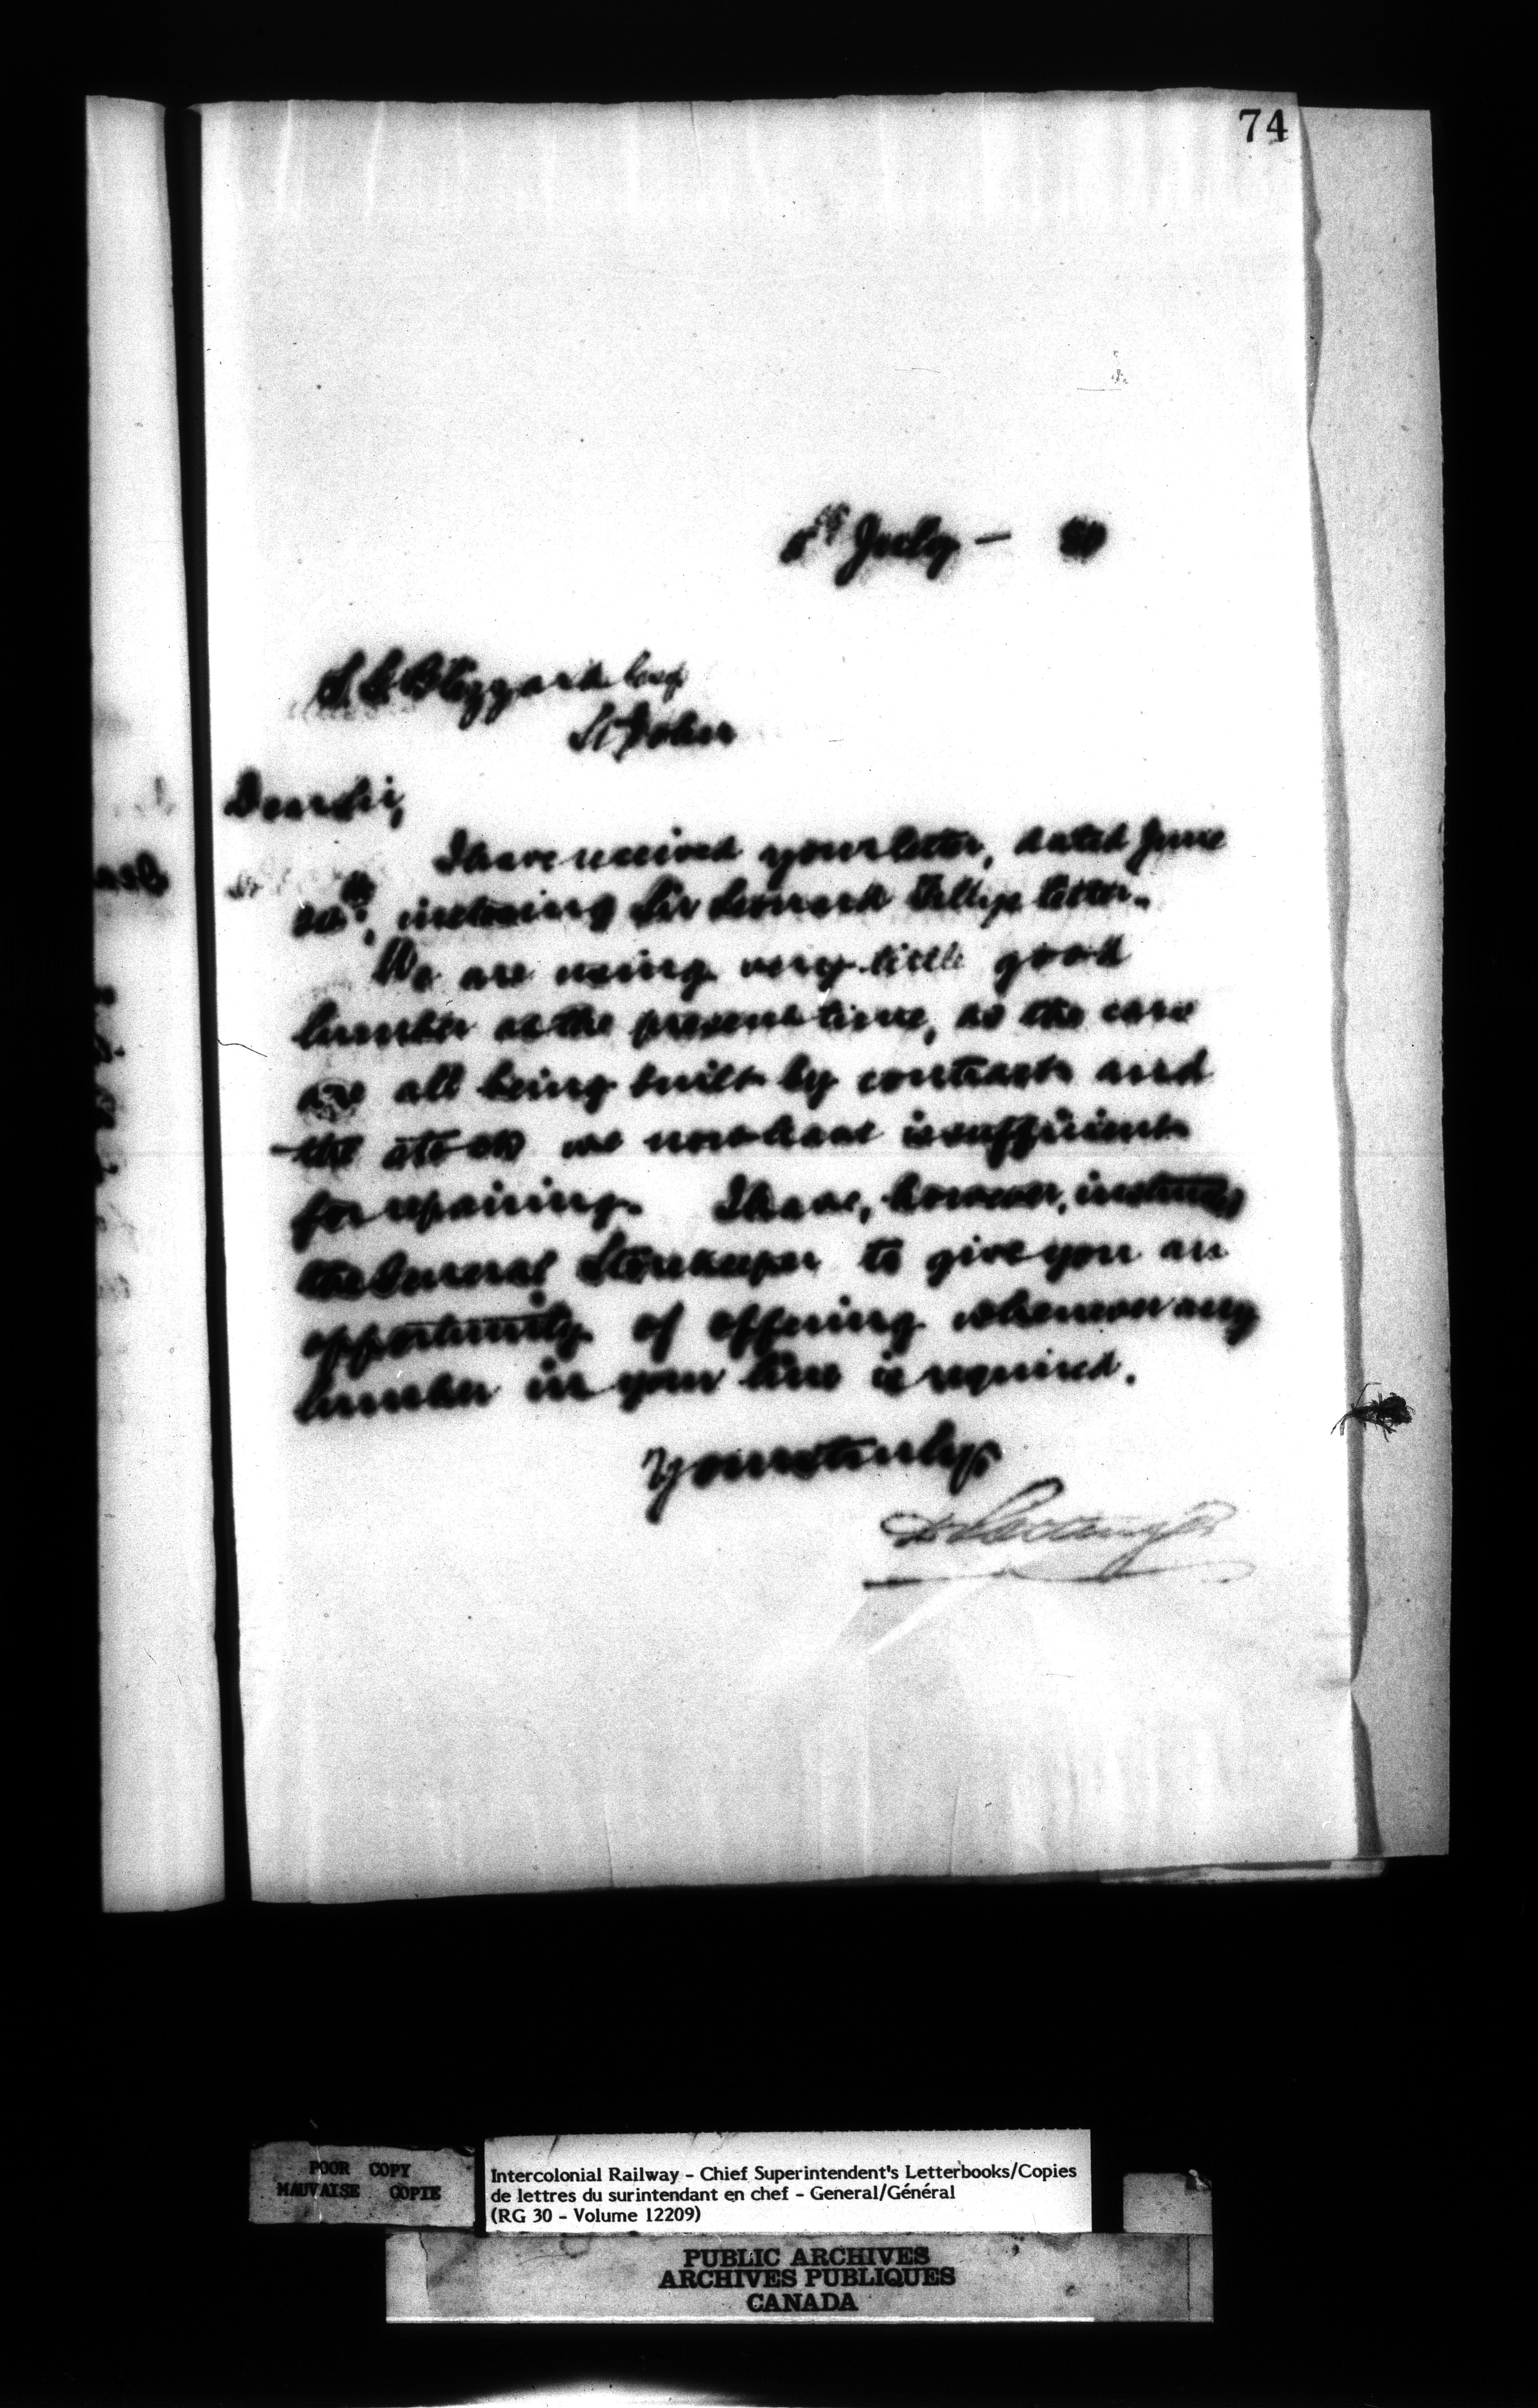 74
5th July –
S. G. Blizzard Esq
St John
Dear Sir,
I have received your letter, dated June
inclosing Sir Leonard Tilley's letter.
We are using very little good
lumber at the present time, as the cars
are all being built by contract and
the stock we now have is sufficient
for repairing. I have, however, instructed
the General Storekeeper to give you an
opportunity of offering whenever any
lumber in your line is required.
Yours truly
D. Pottinger
POOR COPY
MAUVAISE COPIE
Intercolonial Railway - Chief Superintendent's Letterbooks/Copies
de lettres du surintendant en chef - General/Général
(RG 30 - Volume 12209)
PUBLIC ARCHIVES
ARCHIVES PUBLIQUES
CANADA